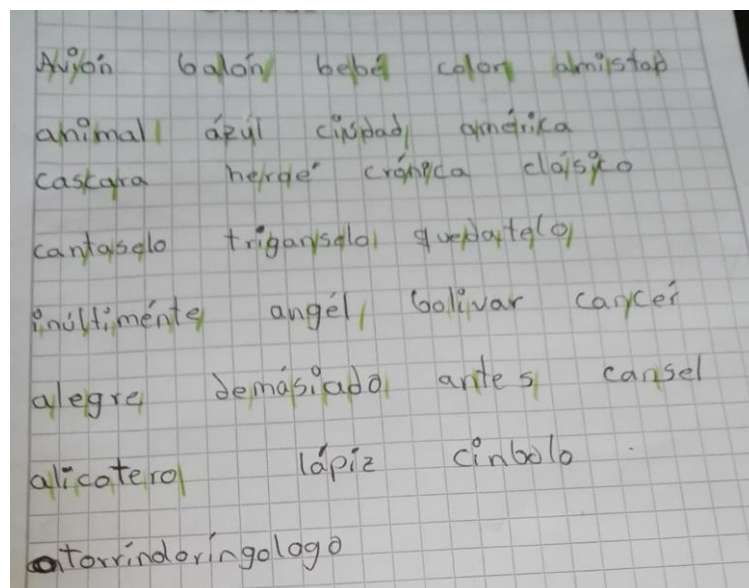 Avión balón bebé colon amistad
animal ázul ciudad américa
cascara heroe crónica clásico
cantaselo triganselo quedatelo
inúltiménte angél bolivar cancér
alegre demásiado antes cansel
alicatero lápiz cinbolo
otorrindoringologo